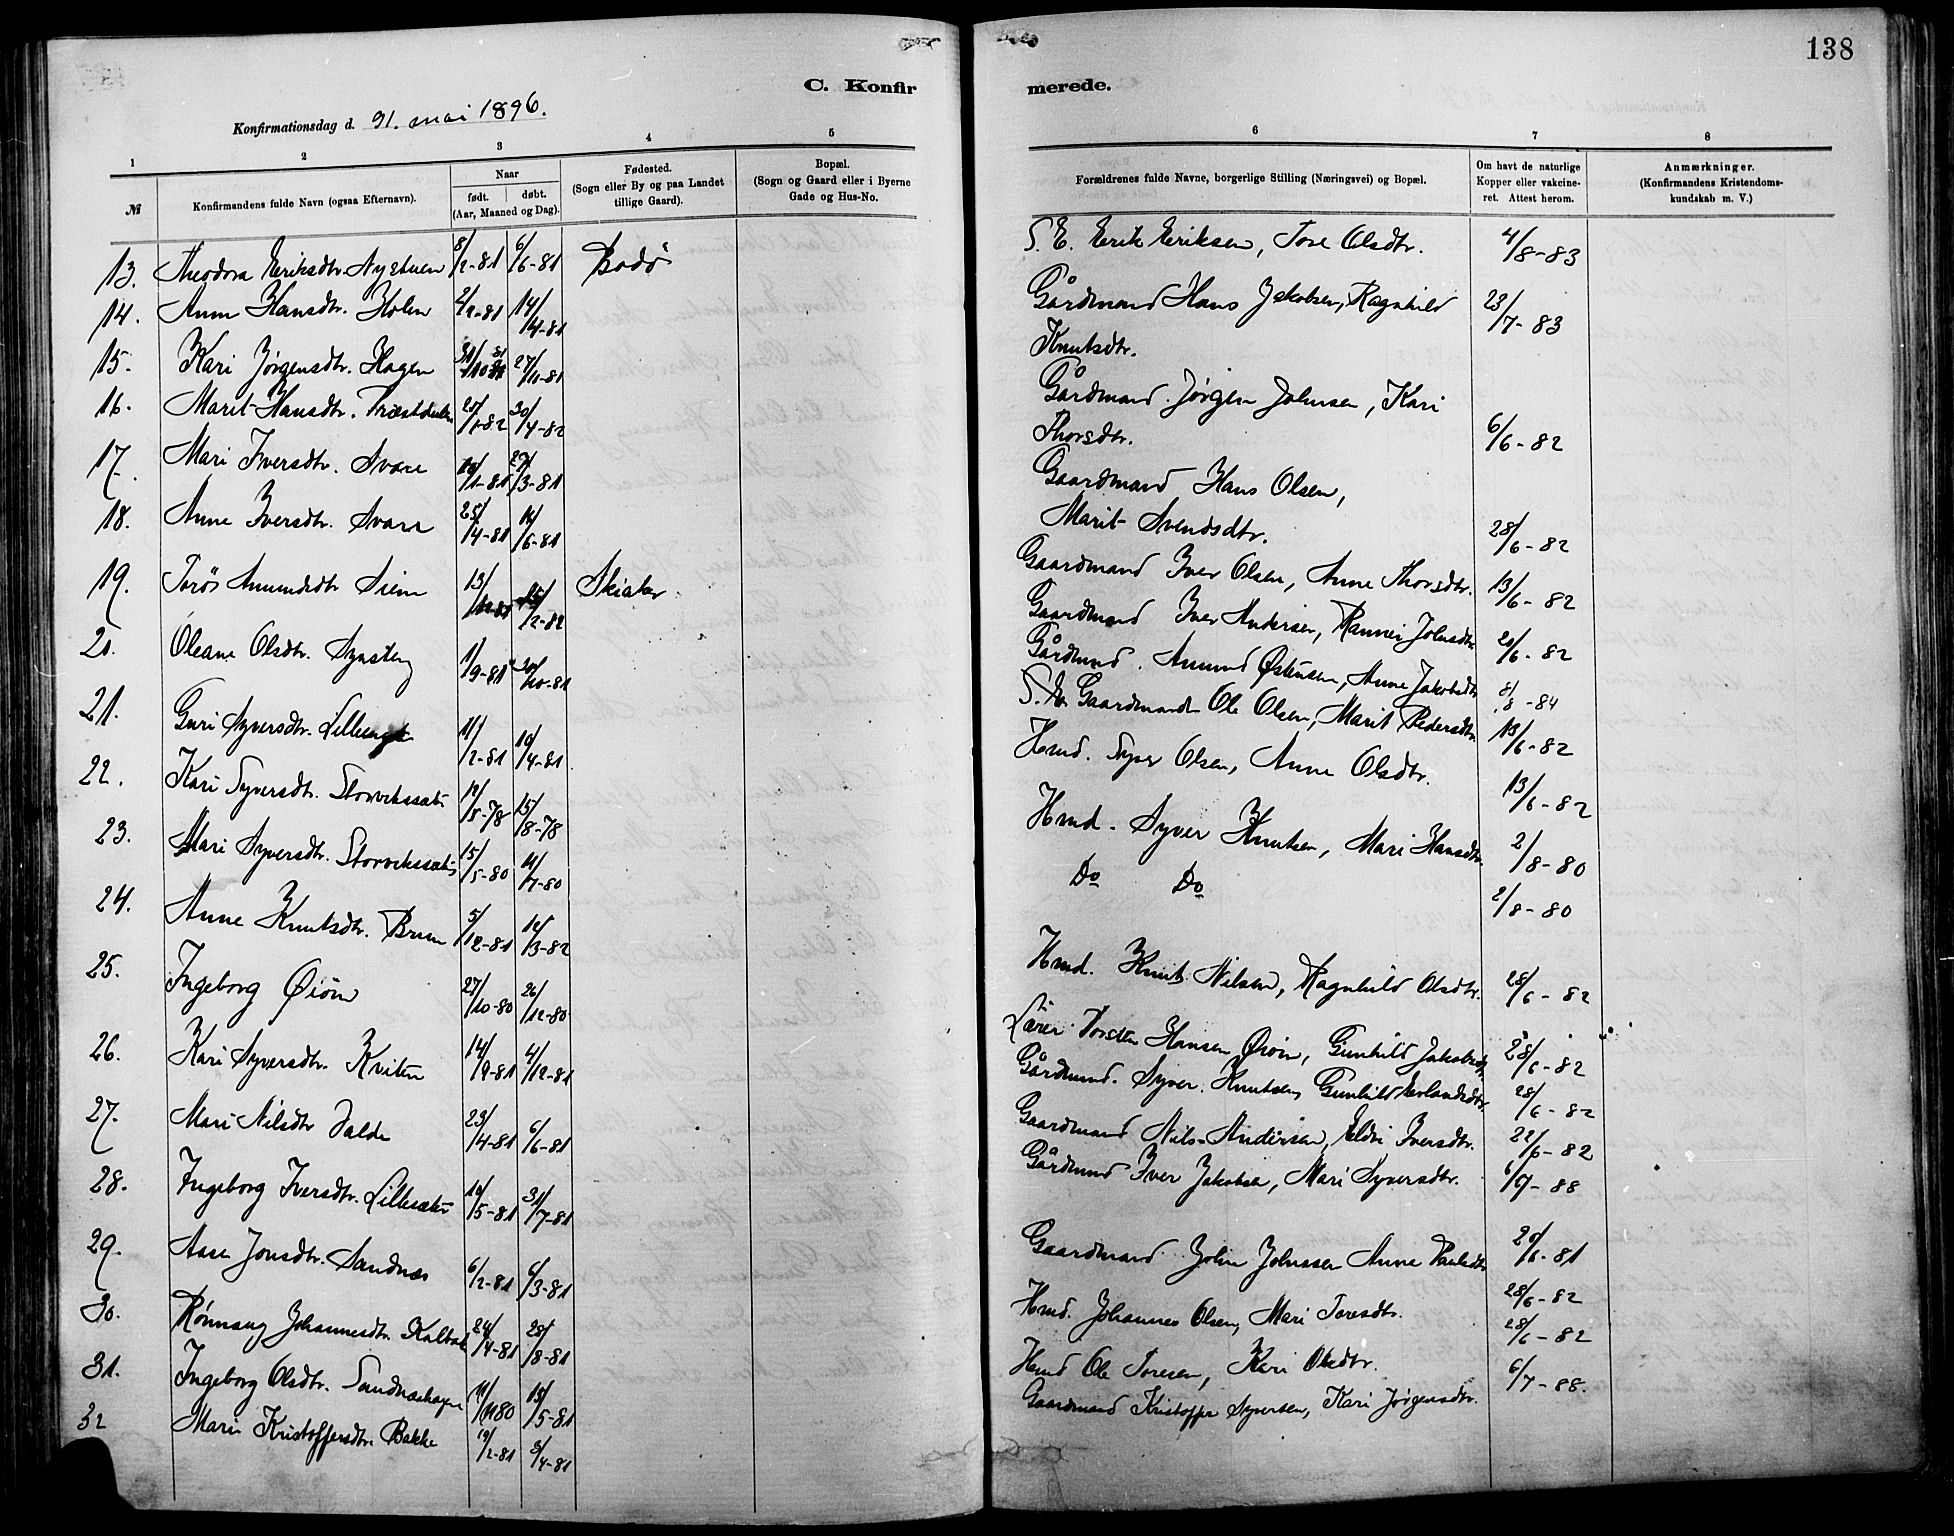 138
C. Konfir
merede.
Konfirmationsdag d. 31. mai 1896.
1 2 3 4 5 6 7 8
№
Konfirmandens fulde Navn (ogsaa Efternavn).
Naar
født. døbt.
(Aar, Maaned og Dag).
Fødested.
(Sogn eller By og paa Landet
tillige Gaard).
Bopæl.
(Sogn og Gaard eller i Byerne
Gade og Hus-No.
Forældrenes fulde Navne, borgerlige Stilling (Næringsvei) og Bopæl.
Om havt de naturlige
Kopper eller vakcine-
ret. Attest herom.
Anmærkninger.
(Konfirmandens Kristendoms-
kundskab m. V.)
13. Theodora Eriksdtr. Nystuen 8/2-81 6/6-81 Bodø
14. Anne Hansdtr. Holen 2/2-81 14/4-81
15. Kari Jørgensdtr. Hagen 27/11-81
16. Marit Hansdtr. 20/1-82 30/4-82
17. Mari Iversdtr. Svare 10/1-81 27/3-81
18. Anne Iversdtr. Svare 25/4-81 /6-81
19. Torø Amundsdtr Siem 13/ /2-82 Skiaker
20. Oleane Olsdtr. Synsteng 1/9-81 30/10-81
21. Guri Syversdtr. 11/2-81 10/4-81
22. Kari Syversdtr. Storvikssæt 12/5-78 15/8-78
23. Mari Syversdtr. Storvikssæt 15/5-80 11/7-80
24. Anne Knutsdtr. Bruu 5/12-81 12/3-82
25. Ingeborg Øiòm 27/10-80 26/12-80
26. Kari Syversdtr. Kviten 14/9-81 4/12-81
27. Mari Nilsdtr Dalde 23/4-81 6/6-81
28. Ingeborg Iversdtr. Lillesæter 10/5-81 31/7-81
29. Aase Jonsdtr. Sandnes 6/2-81 6/3-81
30. Rønnaug Johannesdtr. 24/4-81 28/8-81
31. Ingeborg Olsdtr. Sandneshagen 15/5-81
32 Mari Kristoffersdtr. Bakke 19/2-81 3/4-81
S. E. Erik Eriksen, Tore Olsdtr. 4/8-83
Gårdmand Hans Jakobsen, Ragnhild 23/7-83
Knutsdtr.
Gårdmand. Jørgen Johnsen, Kari
Thorsdtr. 6/6-82
Gaardmand Hans Olsen,
Marit Svendsdtr. 28/6-82
Gaardmand Iver Olsen, Anne Thorsdtr. 13/6-82
Gaardmand Iver Andersen, Rannei Johnsdtr. 20/6-82
Gårdmand. Amund Østensen, Anne Jakobsdtr. /8-84
Gaardmand Ole Olsen, Marit Pedersdtr. 13/6-82
Hmd. Syver Olsen, Anne Olsdtr. 13/6-82
Hmd. Syver Knutsen, Mari Hansdtr. 2/8-80
Do Do 2/8-80
Hmd. Knut Nilsen, Ragnhild Olsdtr. 28/6-82
Lærer Torsten Hansen Øiòm, Gunhild Jakobsdtr 28/6-82
Gårdmand. Syver Knutsen, Gunhild Erlandsdtr. 28/6-82
Gaardmand Nils Andersen, Eldri Iversdtr. 22/6-82
Gårdmand Iver Jakobsen, Mari Syversdtr. 6/7-88
Gaardmand John Johnsen Anne Paulsdtr 20/6-81
28/6-82
Hmd. Johannes Olsen, Mari Toresdtr. 28/6-82
Hmd Ole Toresen, Kari Olsdtr. 6/7-88.
Gaardmand Kristoffer Syversen, Kari Jørgensdtr.